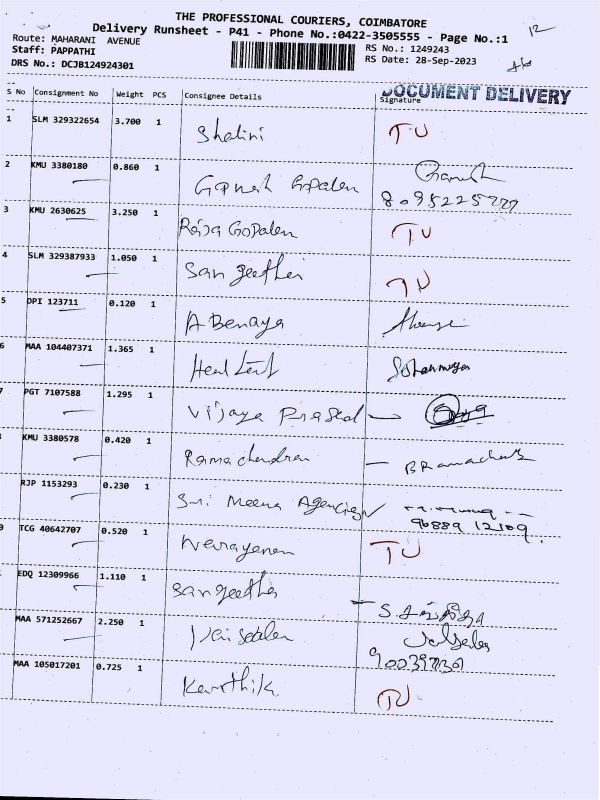 THE PROFESSIONAL COURIERS, COIMBATORE
Delivery Runsheet - P41 - Phone No.:0422-3505555 - Page No.:1
12
Route: MAHARANI AVENUE
RS No.: 1249243
Staff: PAPPATHI
RS Date: 28-Sep-2023
DRS No.: DCJB124924301
DOCUMENT DELIVERY
S No Consignment No Weight PCS Consignee Details Signature
1 SLM 329322654 3.700 1 Shalini TU
2 KMU 3380180 0.860 1 Ganesh Gopalen Ganesh
8095225777
3 KMU 2630625 3.250 1 Raja Gopalen TU
4 SLM 329387933 1.050 1 Sangeetha TU
5 DPI 123711 0.120 1 A Benaya
6 MAA 104407371 1.365 1
7 PGT 7107588 1.295 1 Vijaya Prasad
KMU 3380578 0.420 1 Ramachandran
RJP 1153293 0.230 1 Sri Meena Agencies
96889 12109
TCG 40642707 0.520 1 Narayanan TU
EDQ 12309966 1.110 1 Sangeetha
MAA 571252667 2.250 1
MAA 105017201 0.725 1 Karthik TU